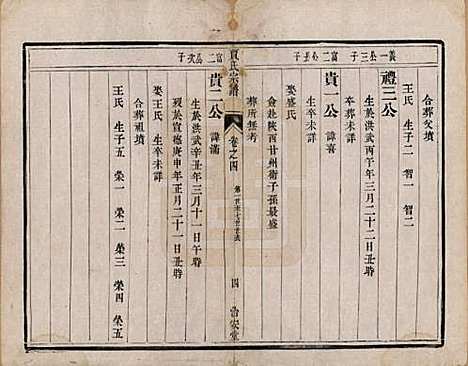 合葬父墳
王氏 生子二 智一 智二
義一公三子
禮三公
生於洪武丙午年三月三日丑時
卒葬未詳
富二公長子
貴一公 諱喜
生卒未詳
娶盛氏
僉赴陝西甘州衛子孫最盛
葬所無考
賈氏宗譜 卷之四 第一世至七世世系 四 治安堂
富二公次子
貴二公 諱滿
生於洪武辛丑年三月十一日午時
歿於宣德庚申年正月二十一日丑時
娶王氏 生卒未詳
合葬祖墳
王氏 生子五 榮一 榮二 榮三 榮四 榮五